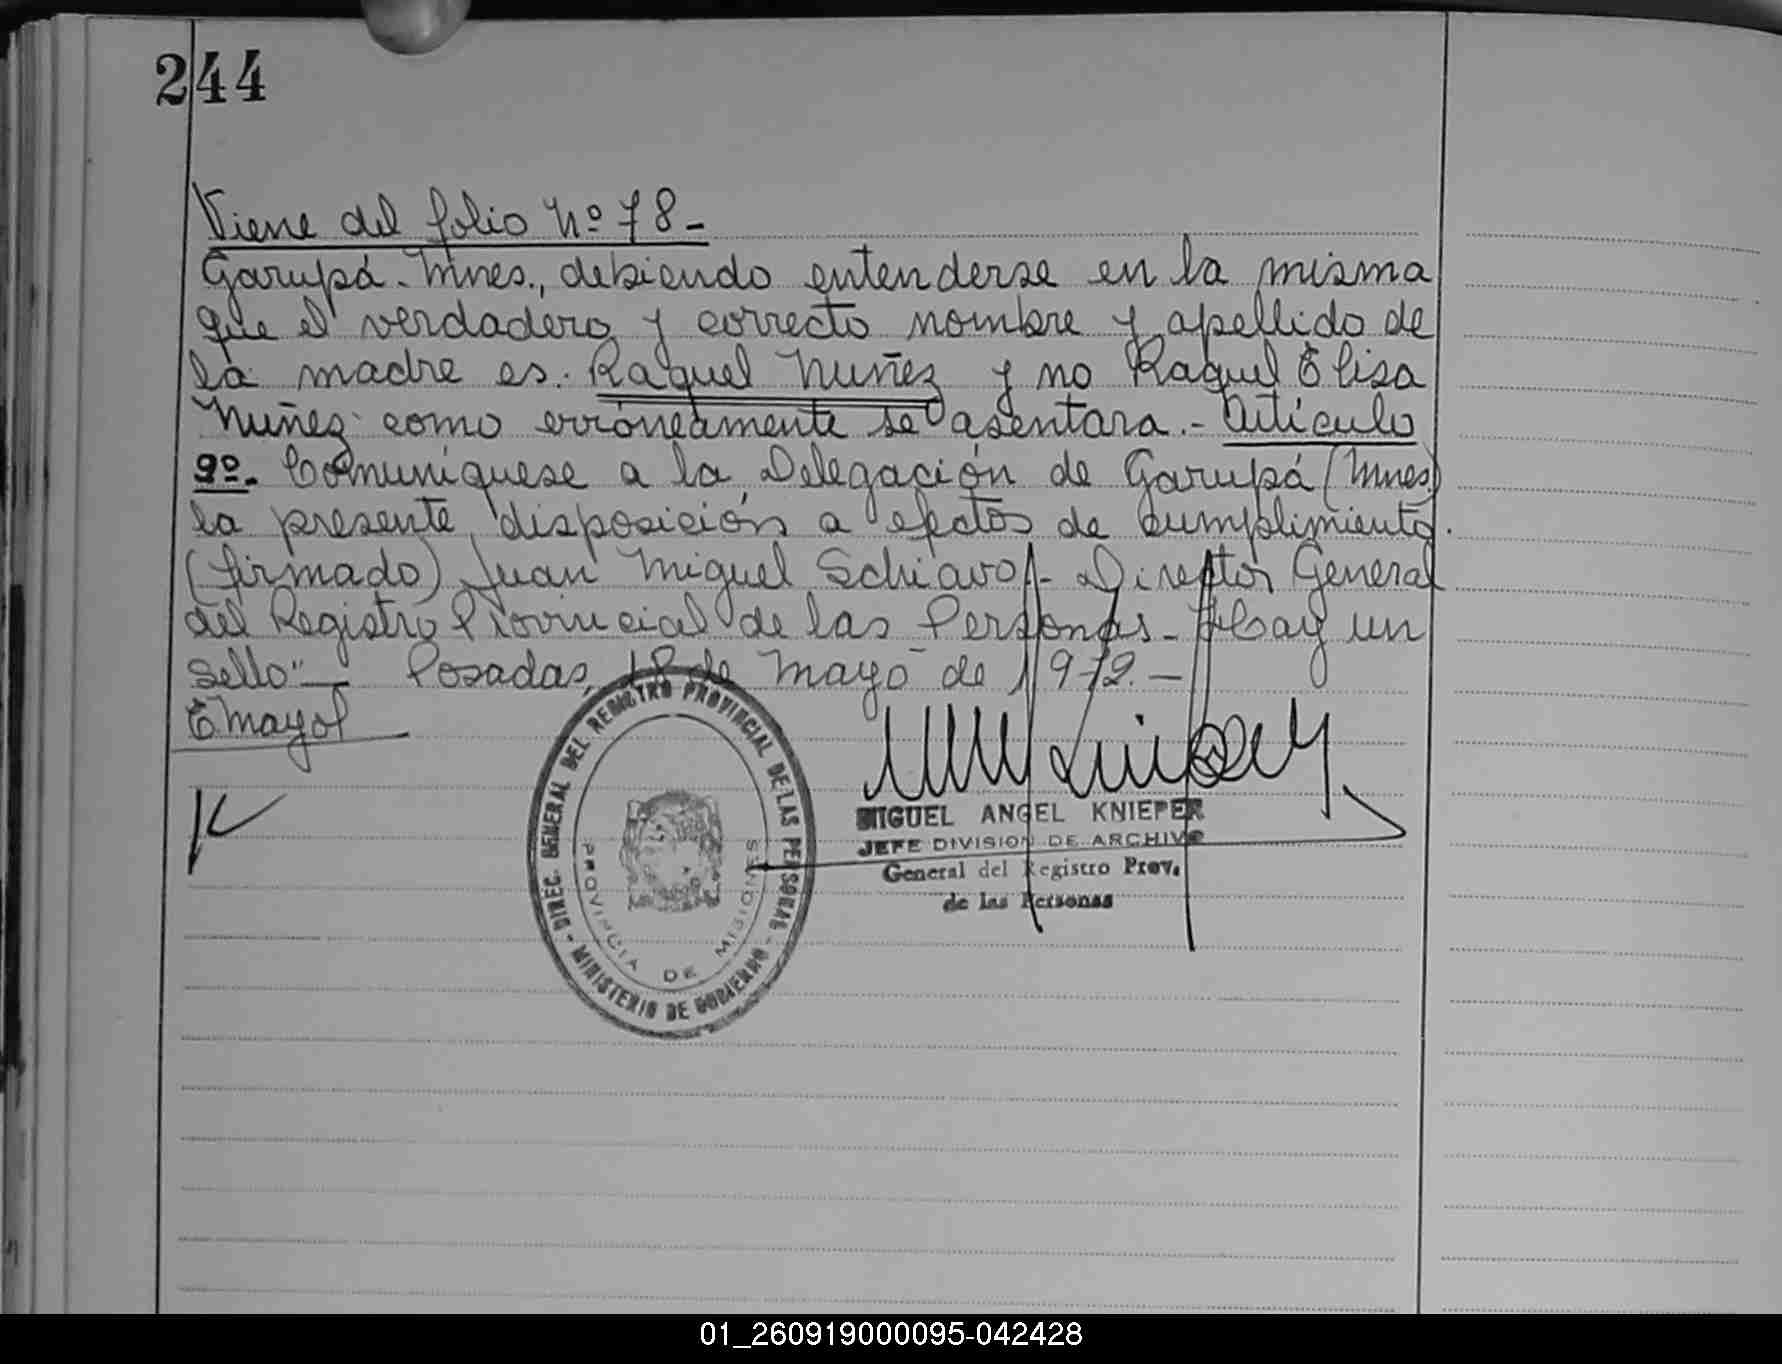 244
Viene del folio Nº 78-
Garupá - Mnes., debiendo entenderse en la misma
que el verdadero y correcto nombre y apellido de
la madre es. Raquel Nuñez y no Raquel Elisa
Nuñez como erróneamente se asentara.- Artículo
9º- Comuníquese a la Delegación de Garupá (Mnes)
la presente disposición a efectos de cumplimiento.
(firmado) Juan Miguel Schiavo - Director General
del Registro Provincial de las Personas - Hay un
sello" - Posadas, 18 de Mayo de 1972.-
E mayol
DIREC. GENERAL DEL REGISTRO PROVINCIAL DE LAS PERSONAS
- MINISTERIO DE GOBIERNO -
PROVINCIA DE MISIONES
MIGUEL ANGEL KNIEPER
JEFE DIVISION DE ARCHIVO
General del Registro Prov.
de las Personas
01_260919000095-042428